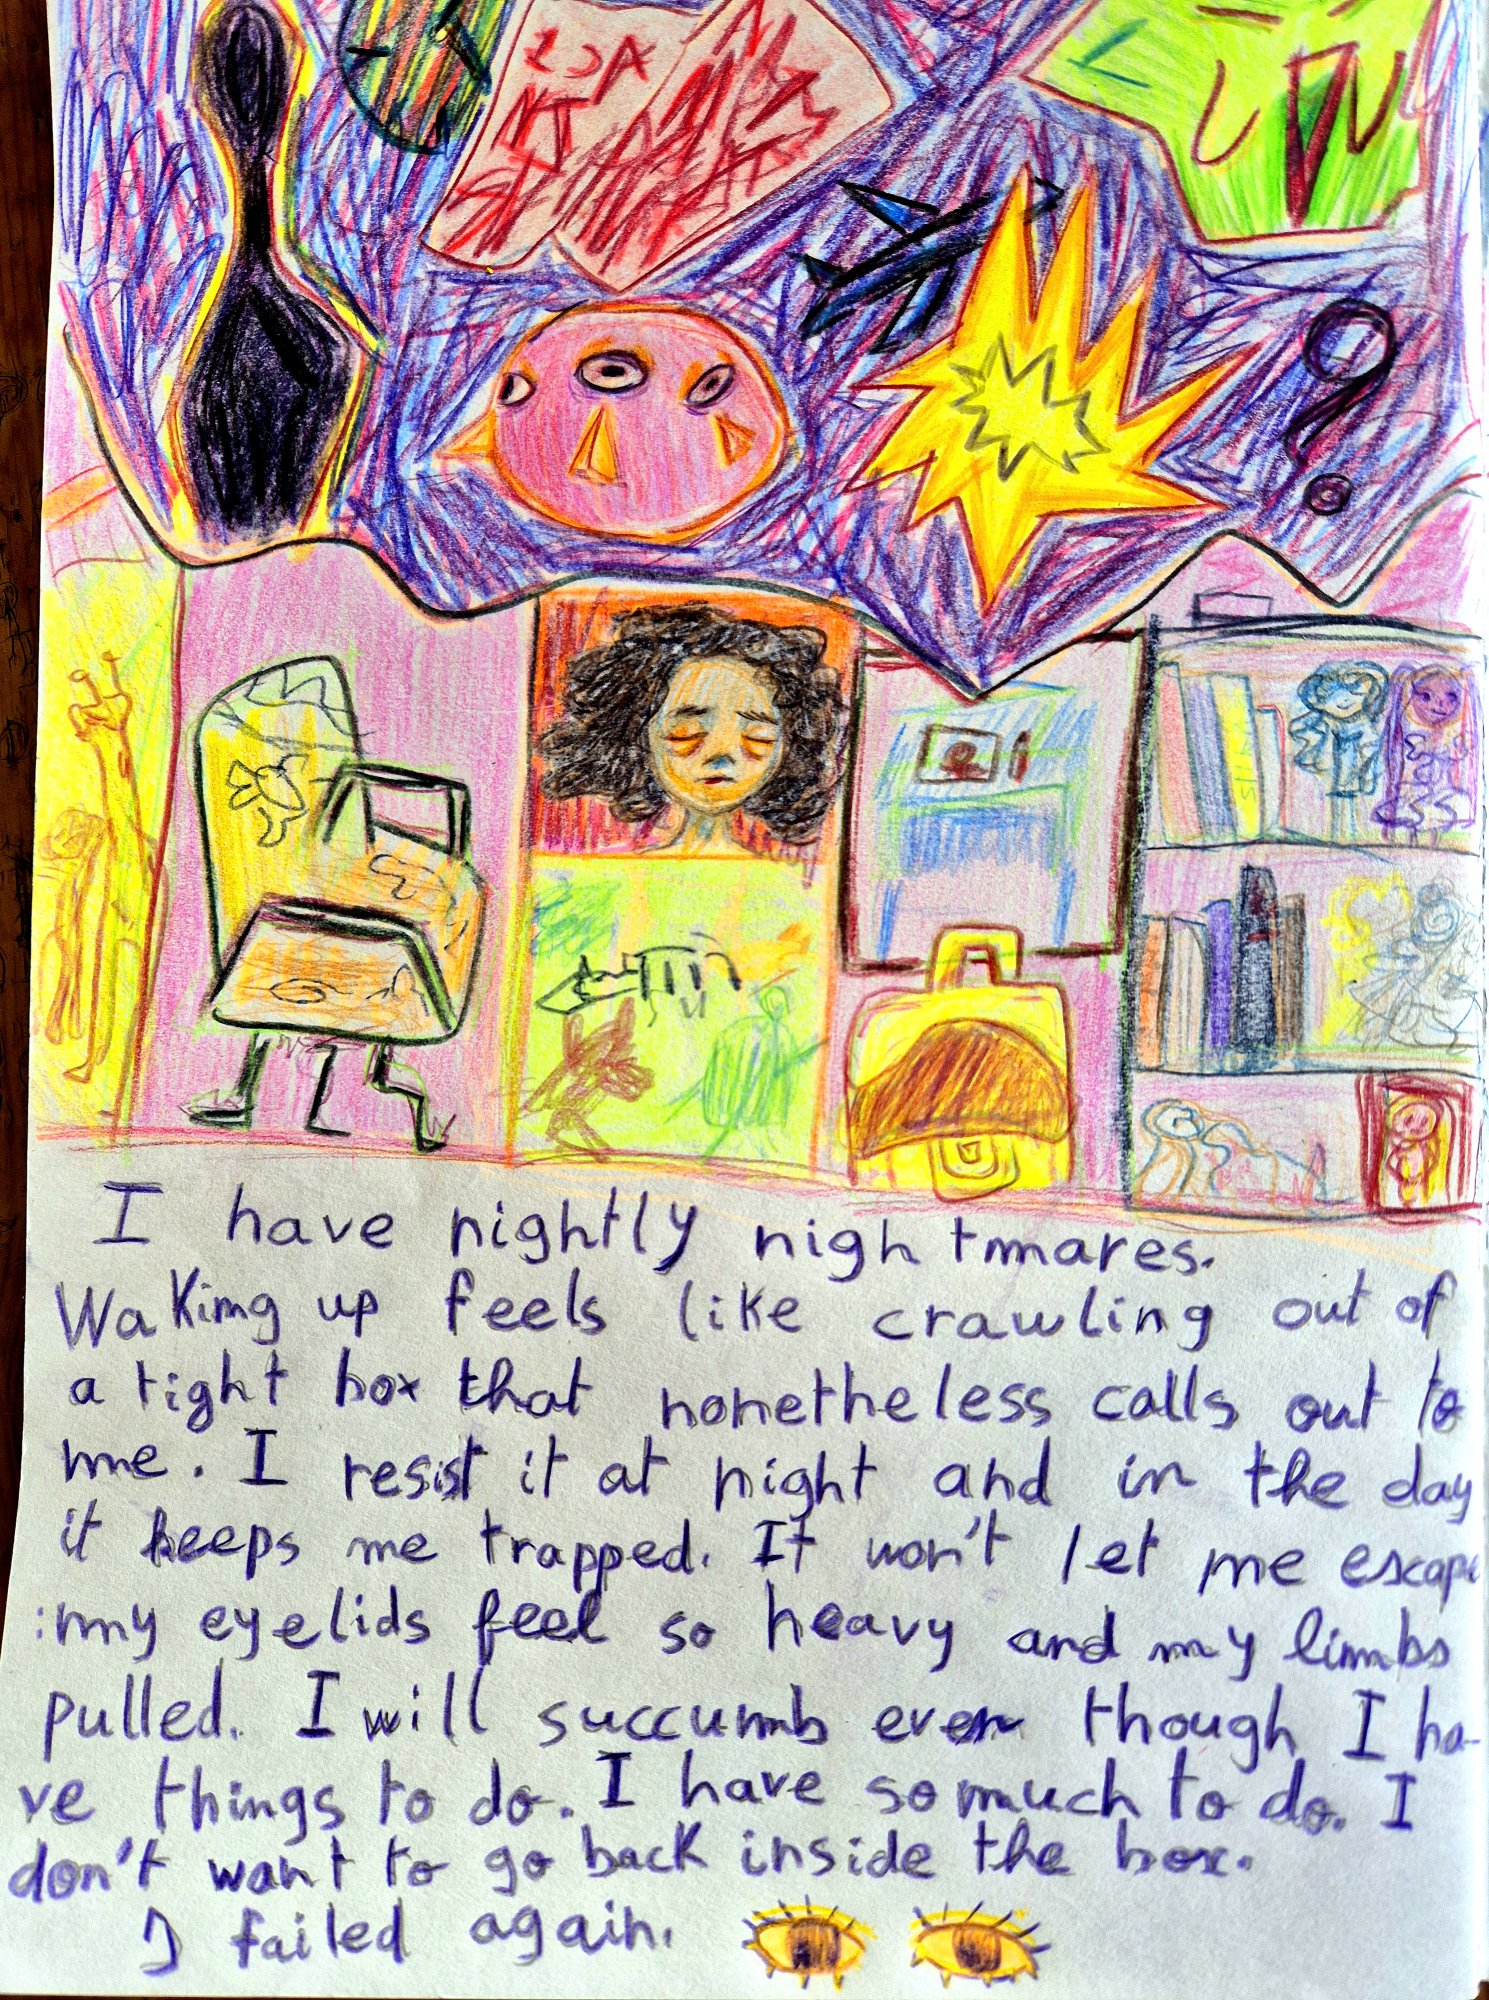 I have nightly nightmares.
Waking up feels like crawling out of
a tight box that nonetheless calls out to
me. I resist it at night and in the day
it keeps me trapped. It won't let me escape
:my eyelids feel so heavy and my limbs
pulled. I will succumb even though I ha-
ve things to do. I have so much to do. I
don't want to go back inside the box.
I failed again.